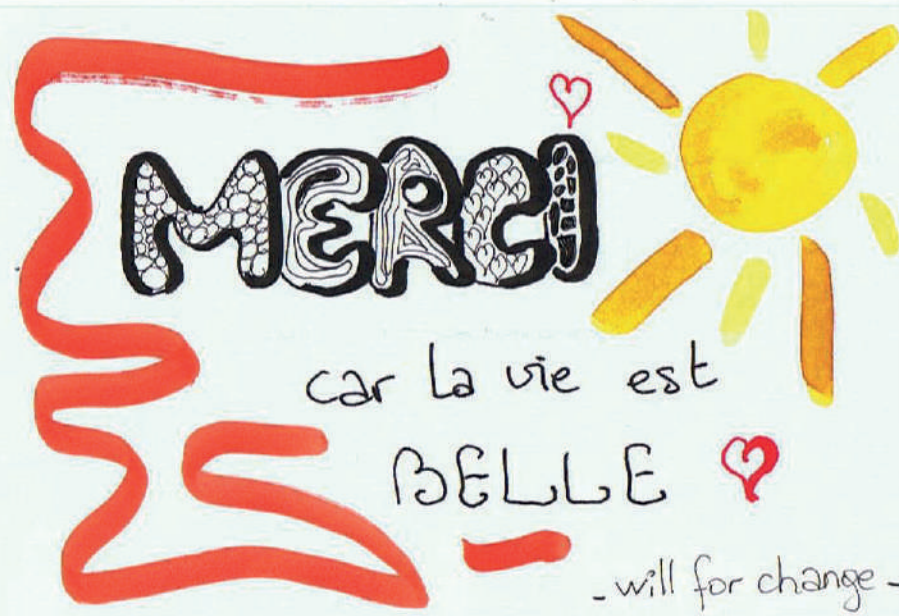 MERCI
car la vie est
BELLE
- will for change -